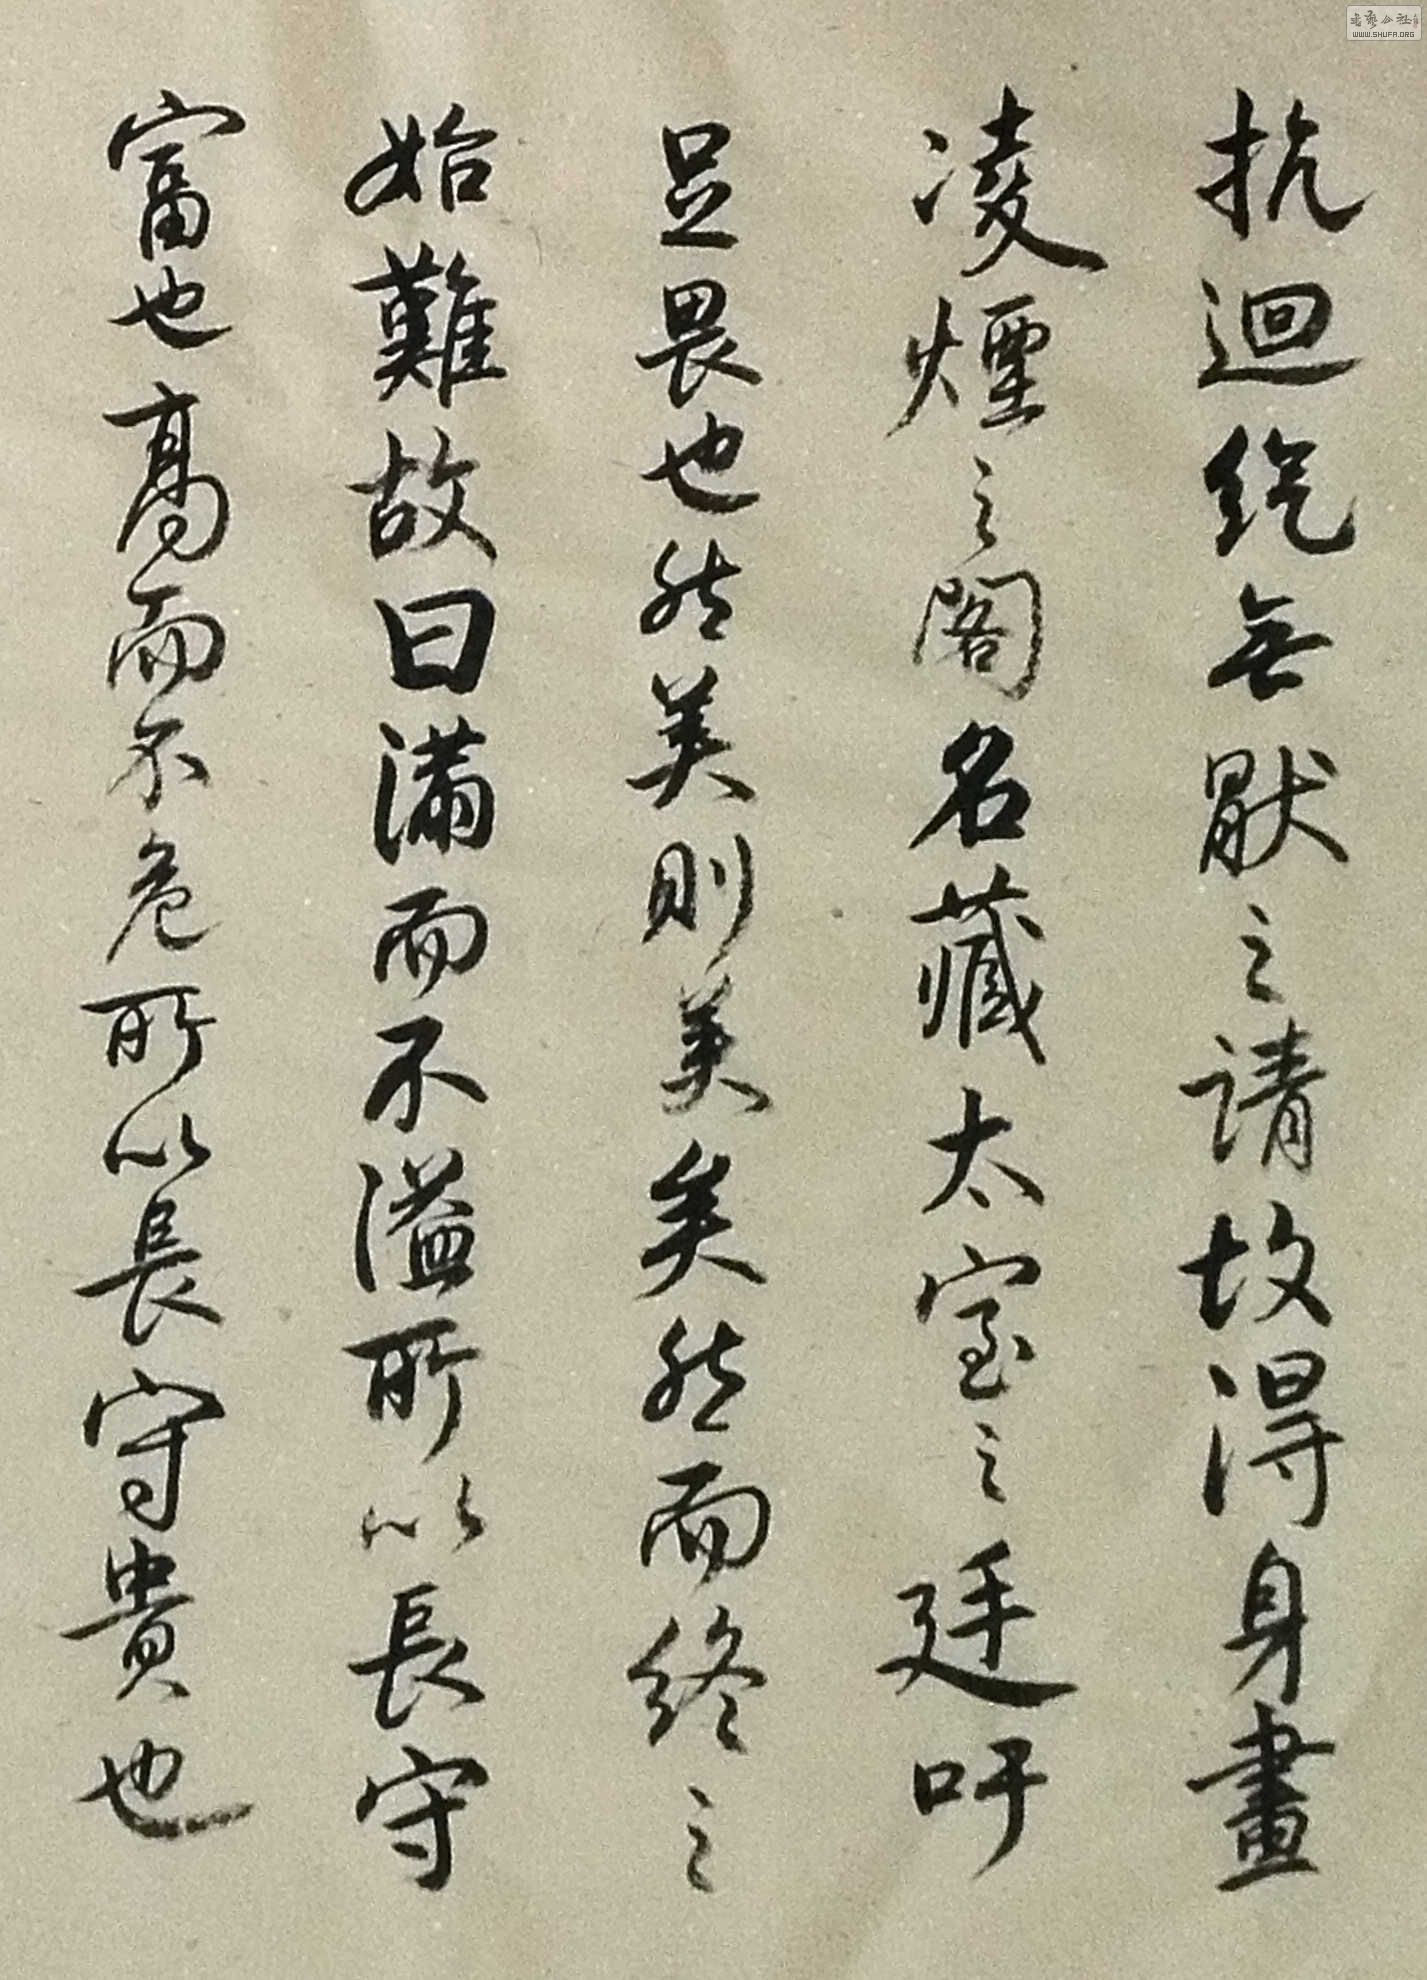 抗迴紇無厭之請故得身畫
凌煙之閣名藏太室之廷吁
足畏也然美則美矣然而終之
始難故曰滿而不溢所以長守
富也高而不危所以長守貴也
書藝公社
WWW.SHUFA.ORG